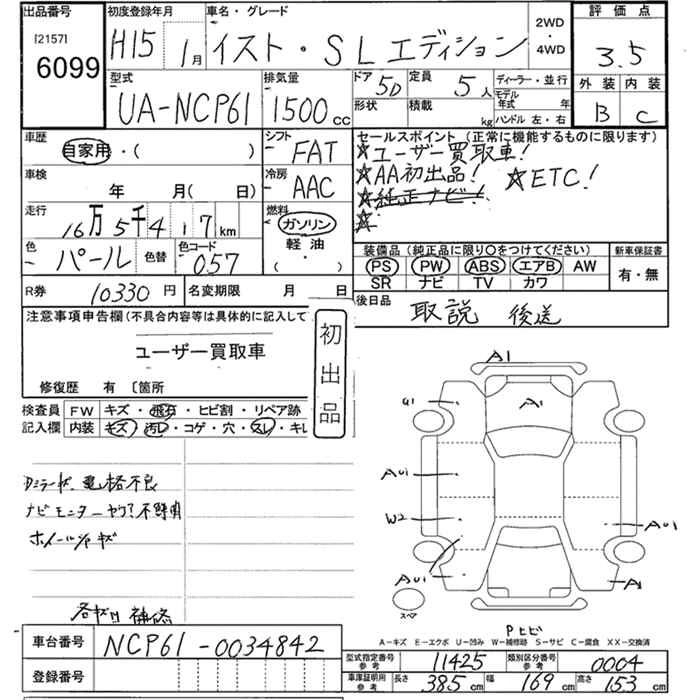 出品番号 初度登録年月 車名・グレード 2WD・4WD 評価点
[2157]
6099 H15 1月 イスト・SLエディション 3.5
型式 排気量 ドア 5D 定員 5人 ディーラー・並行 外装 内装
UA-NCP61 1500cc 形状 積載 kg モデル年式 年 B C
ハンドル 左・右
車歴 シフト セールスポイント(正常に機能するものに限ります)
自家用・( ) FAT ☆ユーザー買取車!
車検 冷房 ☆AA初出品! ☆ETC!
年 月( 日) AAC ☆純正ナビ!
走行 燃料 ☆
16万5千417km ガソリン
色 パール 色替 色コード 057 軽油 ( )
装備品(純正品に限り○をつけてください) 新車保証書
PS PW ABS エアB AW 有・無
SR ナビ TV カワ
R券 10330円 名変期限 月 日 後日品 取説 後送
注意事項申告欄(不具合内容等は具体的に記入して
ユーザー買取車
修復歴 有 〔箇所
初出品
検査員 FW キズ・飛石・ヒビ割・リペア跡
記入欄 内装 キズ・汚レ・コゲ・穴・スレ・キレ
Dミラーキズ 電格不良
ナビモニターヤケ?不鮮明
ホイールキズ
各キズ凹補修
A1
G1 A1
AU1
W2 AU1
AU1 A1
スペア
Pヒビ
A−キズ E−エクボ U−凹み W−補修跡 S−サビ C−腐食 XX−交換済
車台番号 NCP61-0034842
登録番号
型式指定番号参考 11425 類別区分番号参考 0004
車庫証明用参考 長さ 385cm 幅 169cm 高さ 153cm